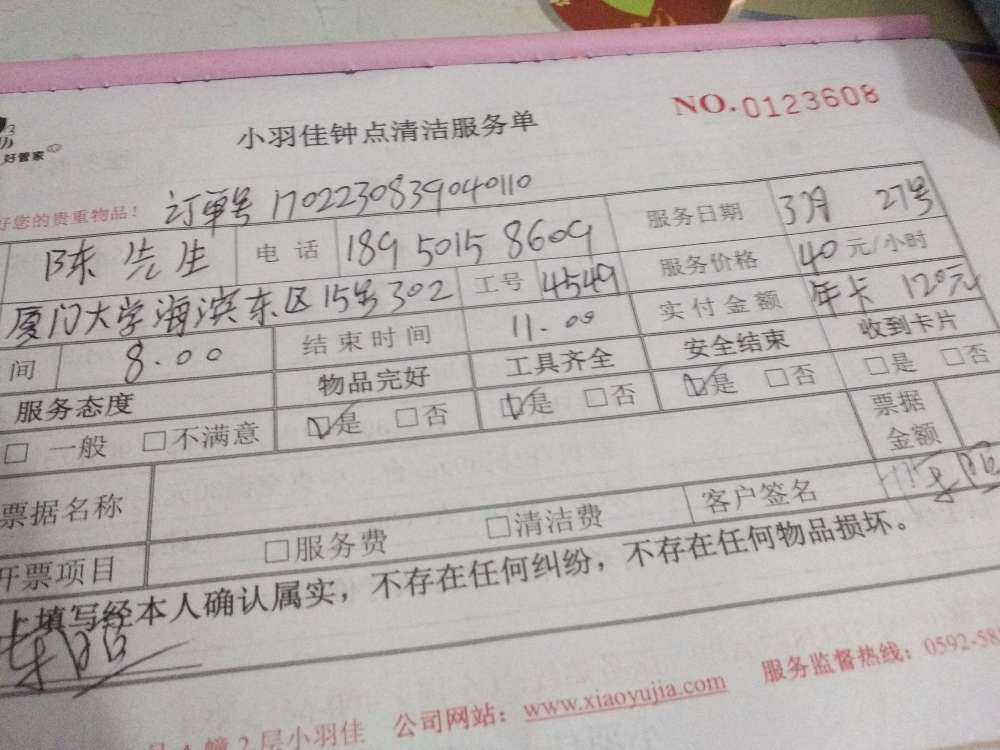 NO.0123608
小羽佳钟点清洁服务单
好管家
好您的贵重物品! 订单号 1702230839040110
陈先生 电话 189 5015 8609 服务日期 3月 27号
厦门大学海滨东区15号302 工号 4549 服务价格 40元/小时
间 8.00 结束时间 11.00 实付金额 年卡 120元
服务态度 物品完好 工具齐全 安全结束 收到卡片
□ 一般 □不满意 ☑是 □否 ☑是 □否 ☑是 □否 □是 □否
票据名称 票据金额
开票项目 □服务费 □清洁费 客户签名
上填写经本人确认属实，不存在任何纠纷，不存在任何物品损坏。
幢2层小羽佳 公司网站：www.xiaoyujia.com 服务监督热线：0592-58